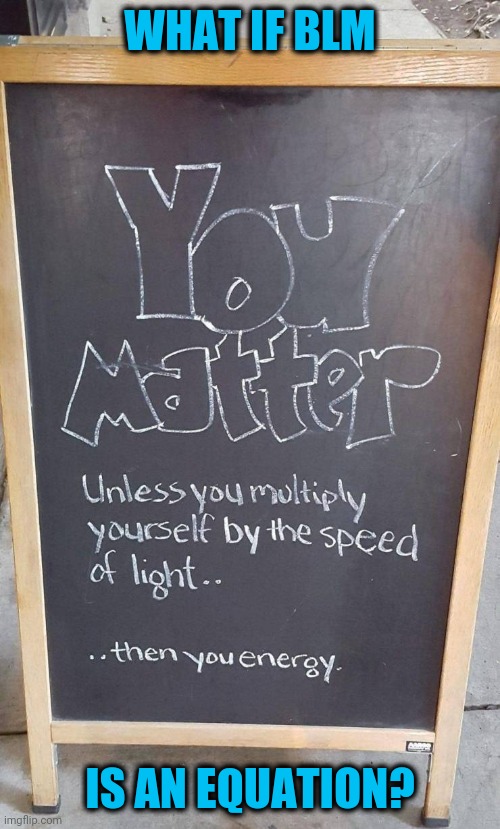 WHAT IF BLM
You
Matter
Unless you multiply
yourself by the speed
of light..
..then you energy.
IS AN EQUATION?
imgflip.com